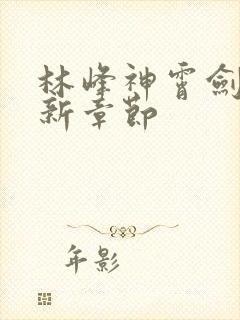 林峰神霄劍
新章節
年影